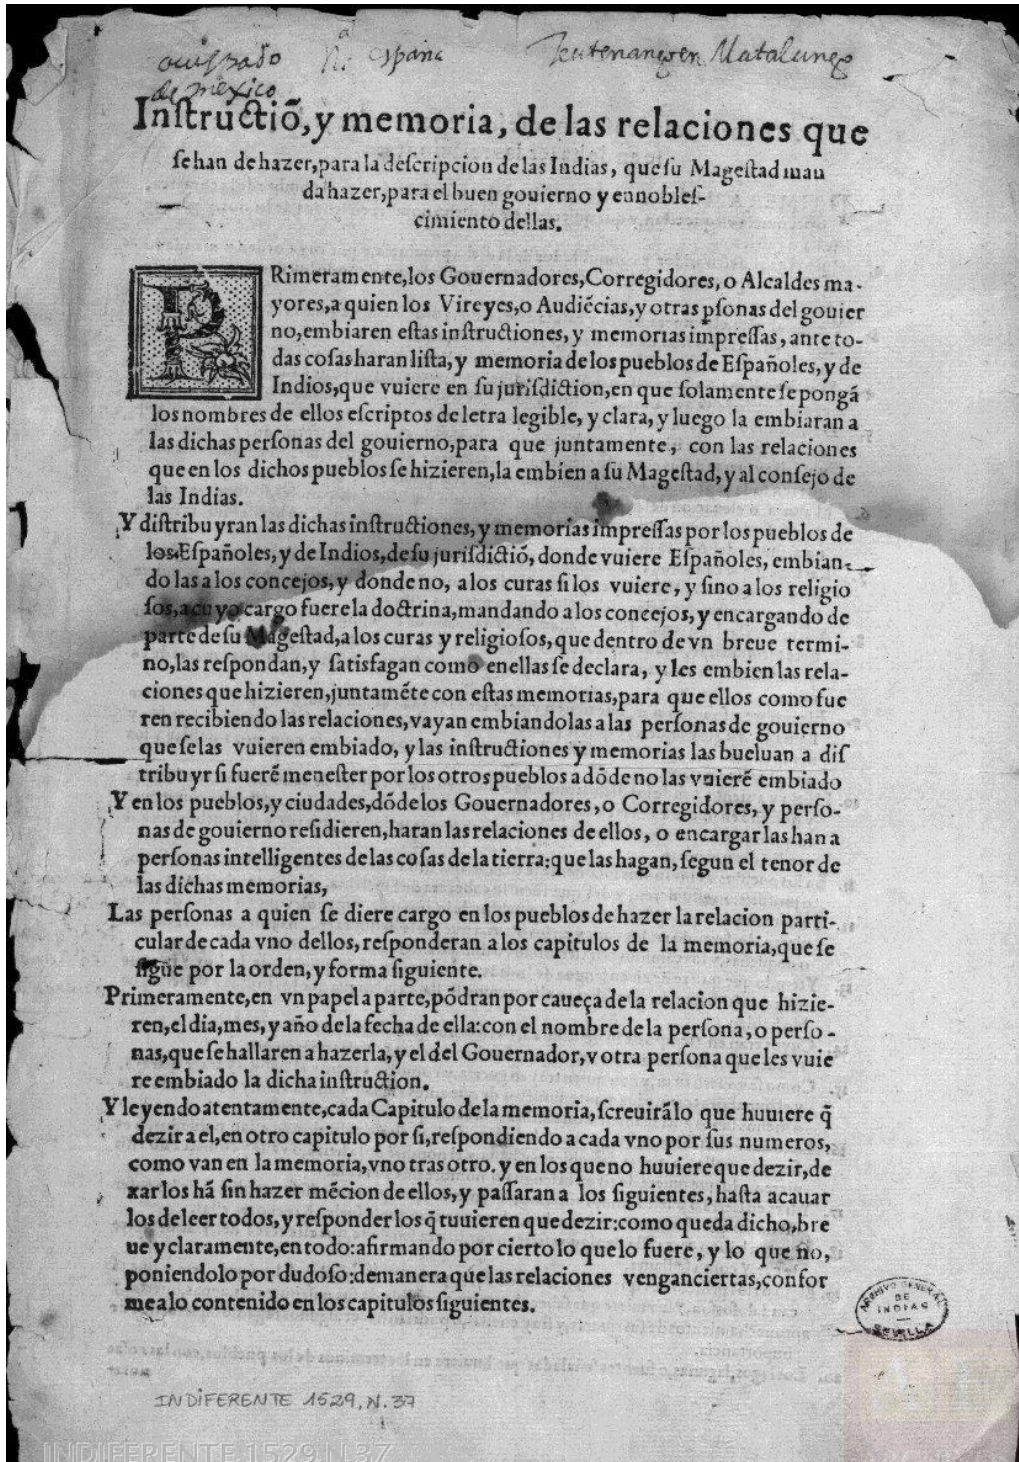 ocuspado
de mexico
Nª España
Teutenango en Matalcingo
Instructiō, y memoria, de las relaciones que
se han de hazer, para la descripcion de las Indias, que su Magestad man
da hazer, para el buen gouierno y ennobles-
cimiento dellas.
PRimeramente, los Gouernadores, Corregidores, o Alcaldes ma-
yores, a quien los Vireyes, o Audiēcias, y otras psonas del gouier
no, embiaren estas instructiones, y memorias impressas, ante to-
das cosas haran lista, y memoria de los pueblos de Españoles, y de
Indios, que vuiere en su jurisdiction, en que solamente se pongā
los nombres de ellos escriptos de letra legible, y clara, y luego la embiaran a
las dichas personas del gouierno, para que juntamente, con las relaciones
que en los dichos pueblos se hizieren, la embien a su Magestad, y al consejo de
las Indias.
Y distribuyran las dichas instructiones, y memorias impressas por los pueblos de
los Españoles, y de Indios, de su jurisdictiō, donde vuiere Españoles, embian-
do las a los concejos, y donde no, a los curas si los vuiere, y sino a los religio
sos, a cuyo cargo fuere la doctrina, mandando a los concejos, y encargando de
parte de su Magestad, a los curas y religiosos, que dentro de vn breue termi-
no, las respondan, y satisfagan como en ellas se declara, y les embien las rela-
ciones que hizieren, juntamēte con estas memorias, para que ellos como fue
ren recibiendo las relaciones, vayan embiandolas a las personas de gouierno
que se las vuieren embiado, y las instructiones y memorias las bueluan a dis
tribuyr si fuerē menester por los otros pueblos a dōde no las vuierē embiado
Y en los pueblos, y ciudades, dōde los Gouernadores, o Corregidores, y perso-
nas de gouierno residieren, haran las relaciones de ellos, o encargar las han a
personas intelligentes de las cosas de la tierra: que las hagan, segun el tenor de
las dichas memorias,
Las personas a quien se diere cargo en los pueblos de hazer la relacion parti-
cular de cada vno dellos, responderan a los capitulos de la memoria, que se
sigue por la orden, y forma siguiente.
Primeramente, en vn papel a parte, pōdran por caueça de la relacion que hizie-
ren, el dia, mes, y año de la fecha de ella: con el nombre de la persona, o perso-
nas, que se hallaren a hazerla, y el del Gouernador, v otra persona que les vuie
re embiado la dicha instruction.
Y leyendo atentamente, cada Capitulo de la memoria, screuirā lo que huuiere q̄
dezir a el, en otro capitulo por si, respondiendo a cada vno por sus numeros,
como van en la memoria, vno tras otro. y en los que no huuiere que dezir, de
xar los hā sin hazer mēcion de ellos, y passaran a los siguientes, hasta acauar
los de leer todos, y responder los q̄ tuuieren que dezir: como queda dicho, bre
ue y claramente, en todo: afirmando por cierto lo que lo fuere, y lo que no,
poniendolo por dudoso: de manera que las relaciones vengan ciertas, confor
me a lo contenido en los capitulos siguientes.
ARCHIVO GENERAL
DE
INDIAS
SEVILLA
INDIFERENTE 1529, N. 37
INDIFERENTE,1529,N.37